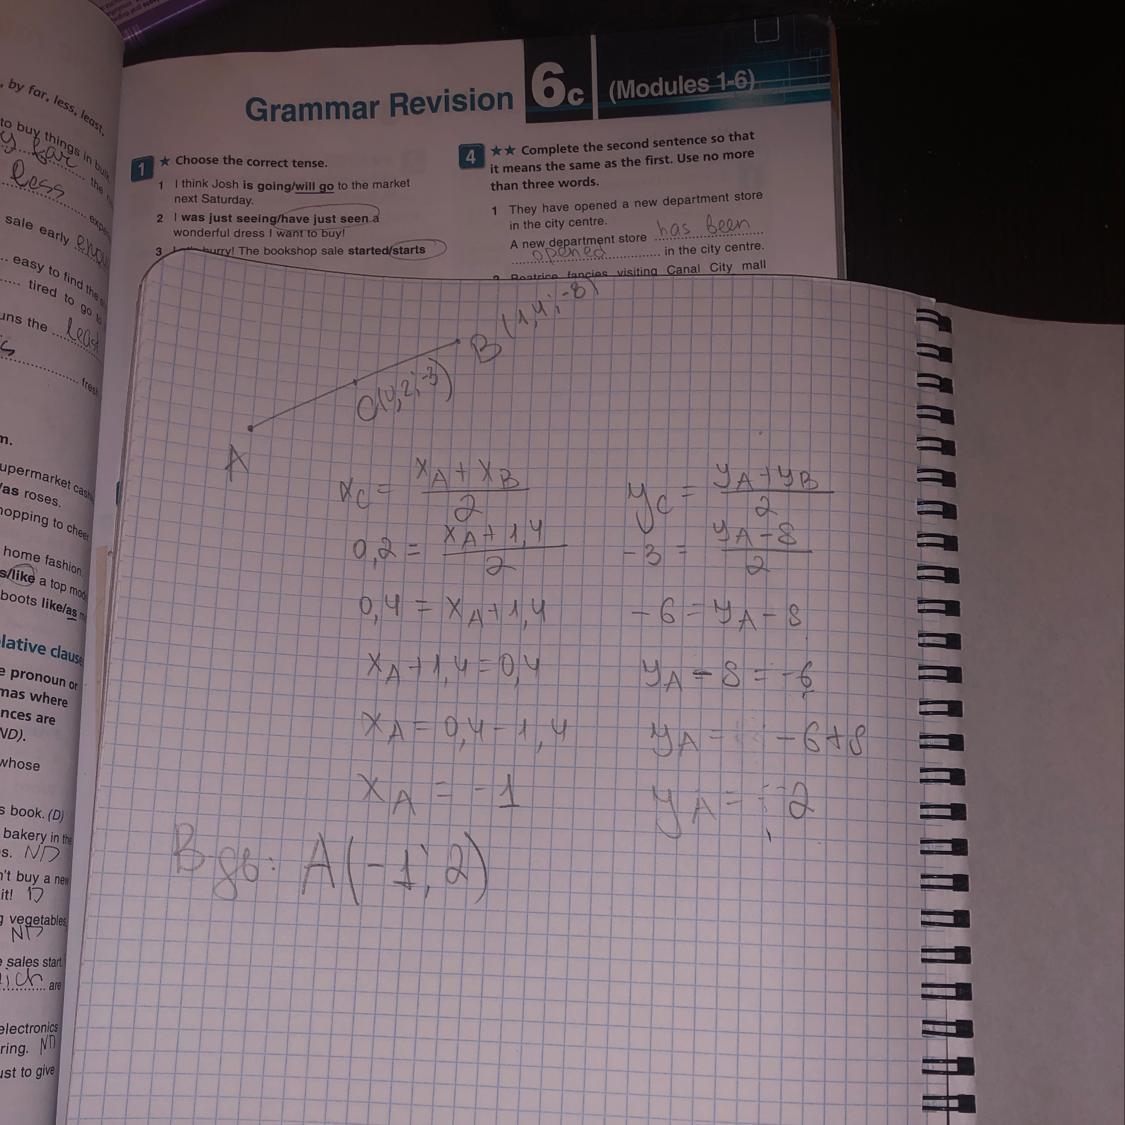 , by far, less, least,
to buy things in bulk
y far
the
less
sale early
easy to find the
tired to go to
uns the least
fresh
m.
upermarket cash
/as roses.
hopping to cheer
home fashion.
s/like a top mod
boots like/as m
lative clause
e pronoun or
mas where
nces are
ND).
whose
s book. (D)
bakery in the
s. ND
n't buy a new
it! D
g vegetables
ND
e sales start
hich are
electronics
ring. ND
ust to give
Grammar Revision 6c (Modules 1-6)
1 ★ Choose the correct tense.
1 I think Josh is going/will go to the market
next Saturday.
2 I was just seeing/have just seen a
wonderful dress I want to buy!
3 hurry! The bookshop sale started/starts
4 ★★ Complete the second sentence so that
it means the same as the first. Use no more
than three words.
1 They have opened a new department store
in the city centre.
A new department store has been
opened in the city centre.
2 Beatrice fancies visiting Canal City mall
B(1,4;-8)
C(0,2;-3)
A
x_C = (x_A + x_B)/2
0,2 = (x_A + 1,4)/2
0,4 = x_A + 1,4
x_A + 1,4 = 0,4
x_A = 0,4 - 1,4
x_A = -1
y_C = (y_A + y_B)/2
-3 = (y_A - 8)/2
-6 = y_A - 8
y_A - 8 = -6
y_A = -6 + 8
y_A = 2
Вдв: A(-1; 2)